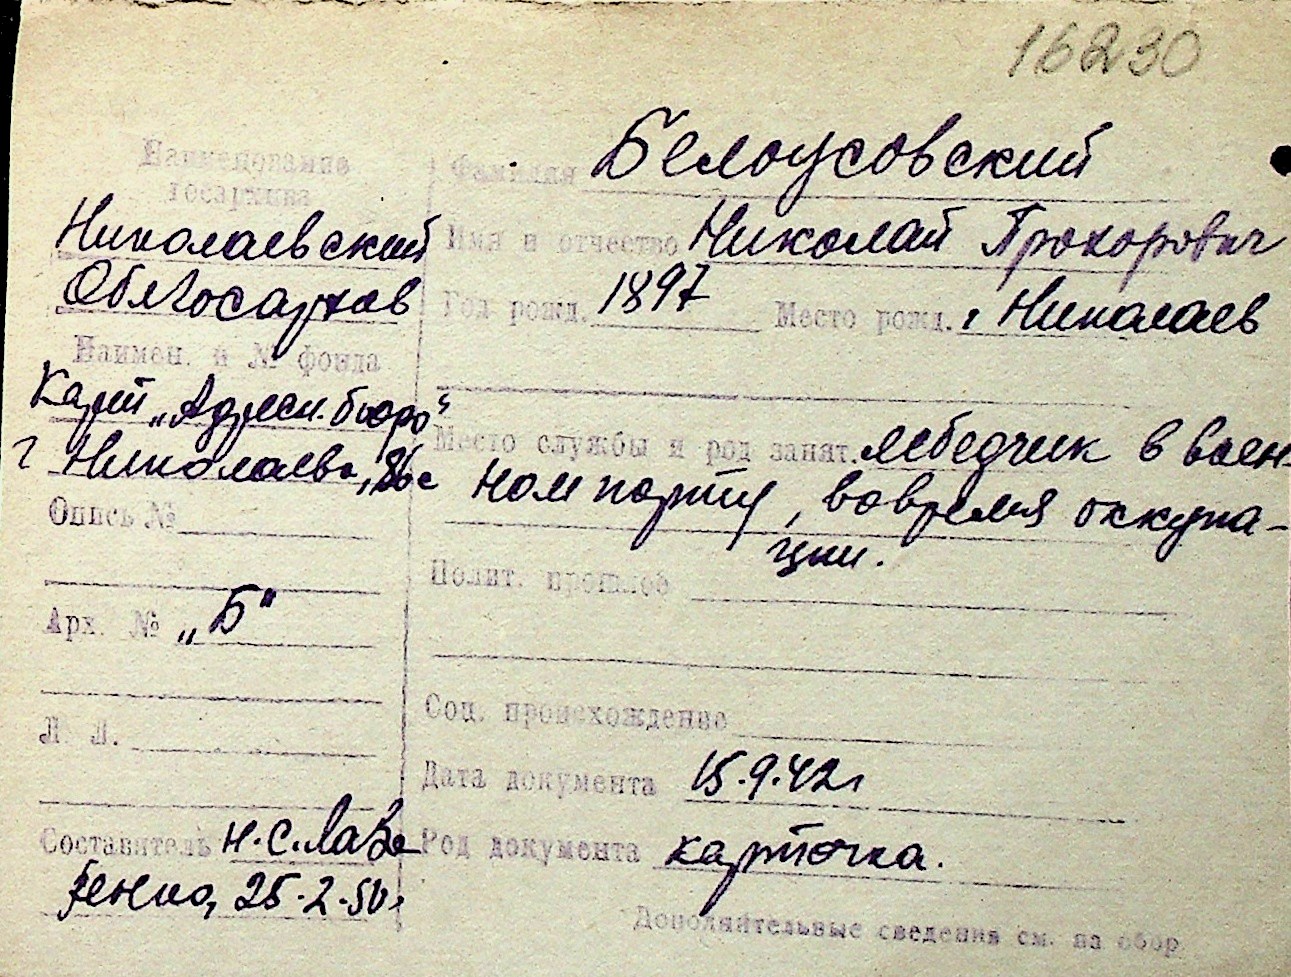 16230
Наименование
госархива
Николаевский
Облгосархив
Наимен. и № фонда
Карт. „Адресн. бюро"
г Николаева,
Опись №
Арх. № „Б"
Л. Л.
Составитель Н.С. Лазе
25.2.50г
Фамилия Белоусовский
Имя и отчество Николай Прохорович
Год рожд. 1897 Место рожд. г Николаев
Место службы и род занят. лебедчик в воен-
ном порту, вовремя оккупа-
ции.
Полит. прошлое
Соц. происхождение
Дата документа 15.9.42г
Род документа карточка.
Дополнительные сведения см. на обор